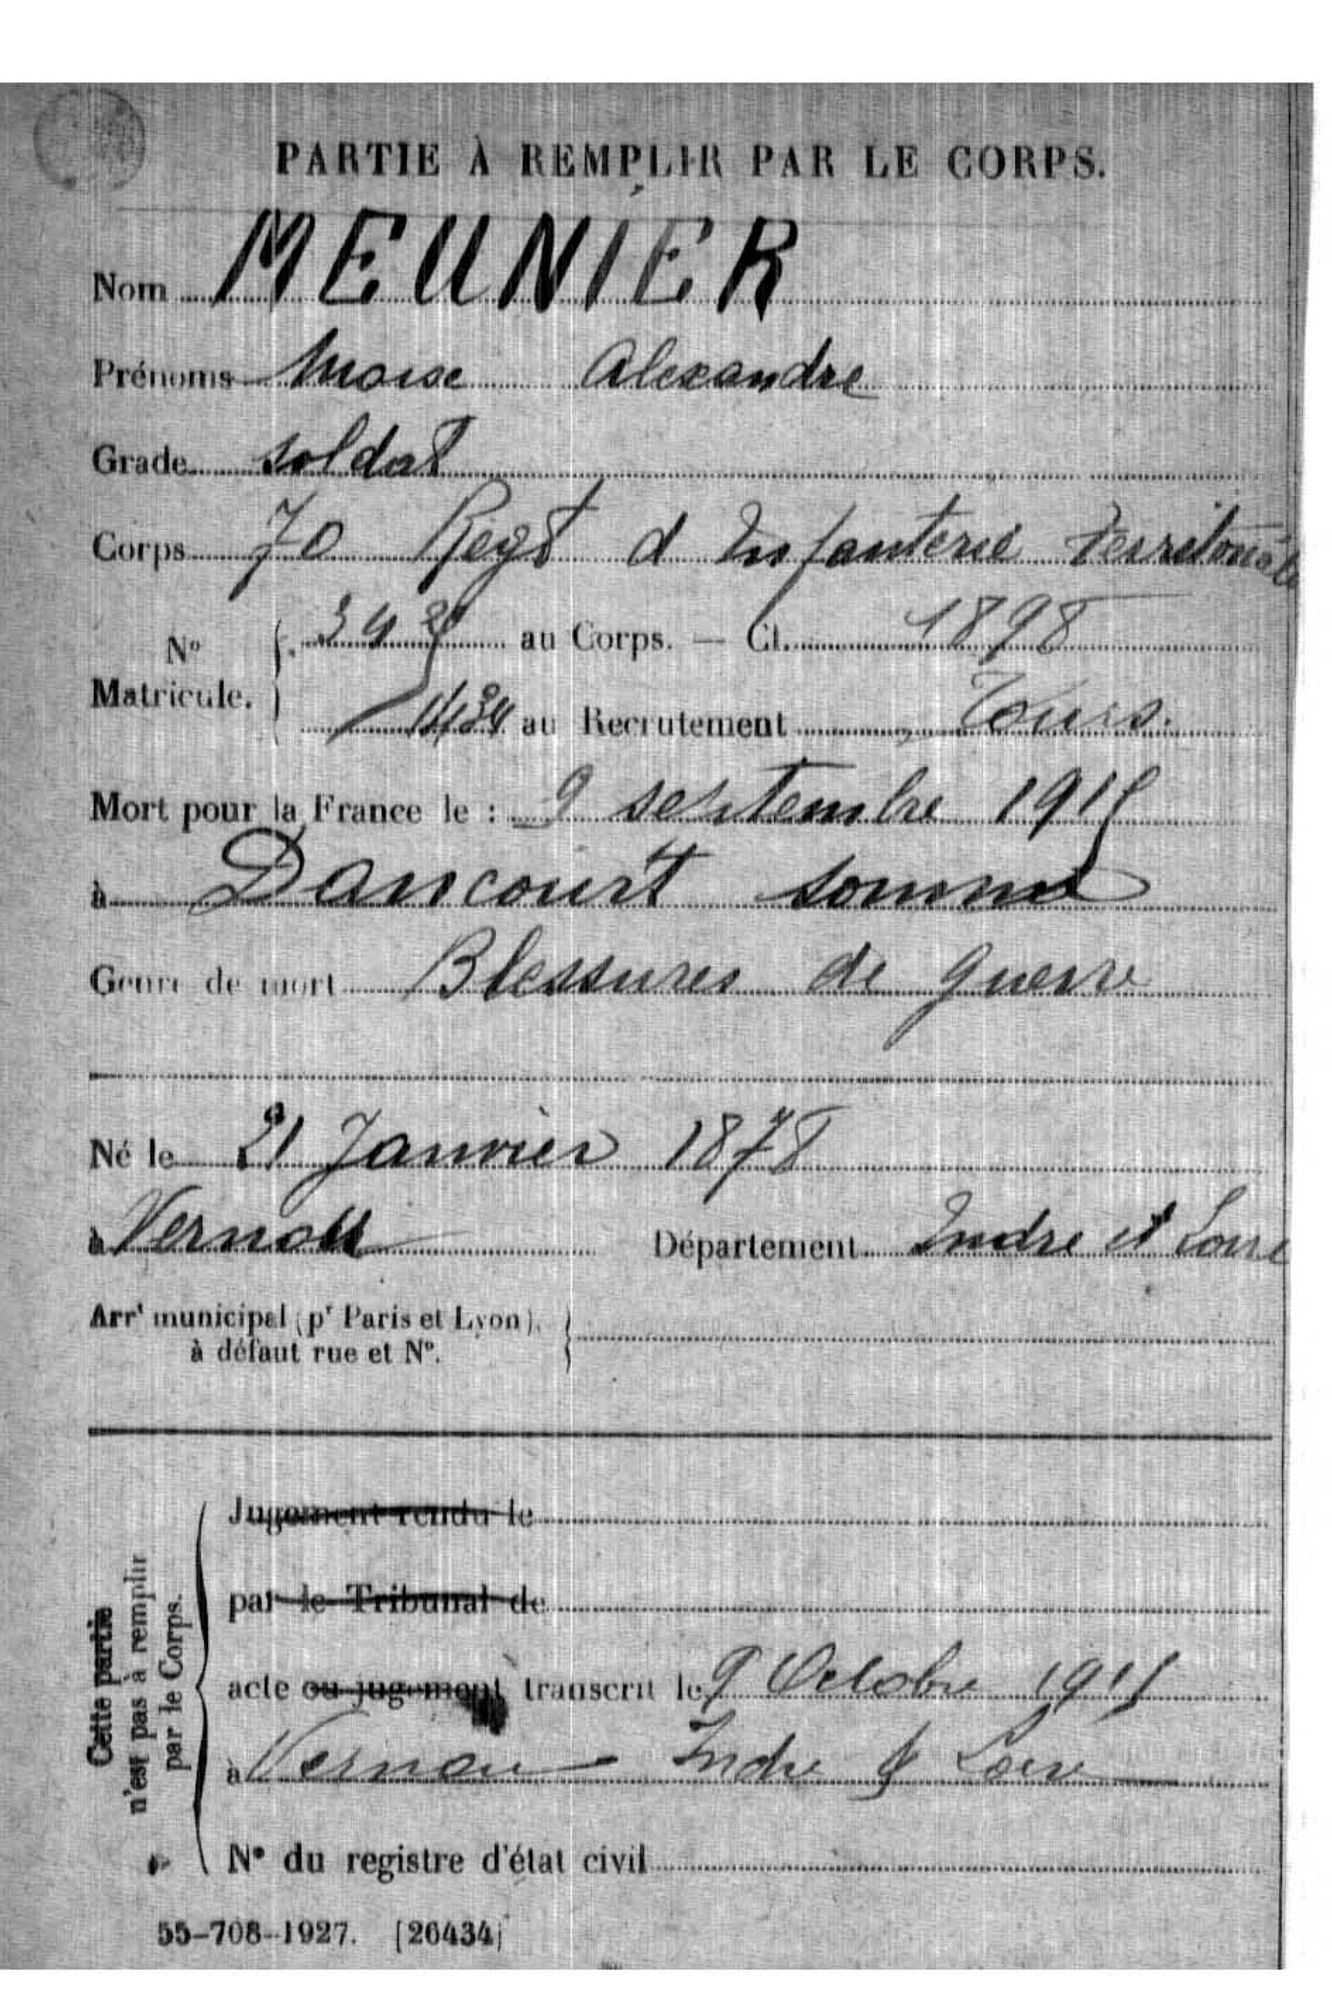 PARTIE À REMPLIR PAR LE CORPS.
Nom MEUNIER
Prénoms Moise Alexandre
Grade soldat
Corps 70 Regt d Infanterie Territoriale
N° Matricule. { 
au Corps. — Cl. 1898
au Recrutement Tours.
Mort pour la France le : 9 septembre 1915
à Dancourt somme
Genre de mort Blessures de guerre
Né le 21 Janvier 1878
à Vernou Département Indre et Loire
Arrt municipal (pr Paris et Lyon), à défaut rue et N°. {
Cette partie n'est pas à remplir par le Corps.
Jugement rendu le
par le Tribunal de
acte ou jugement transcrit le 9 Octobre 1915
à Vernou Indre & Loire
N° du registre d'état civil
55-708-1927. [26434]